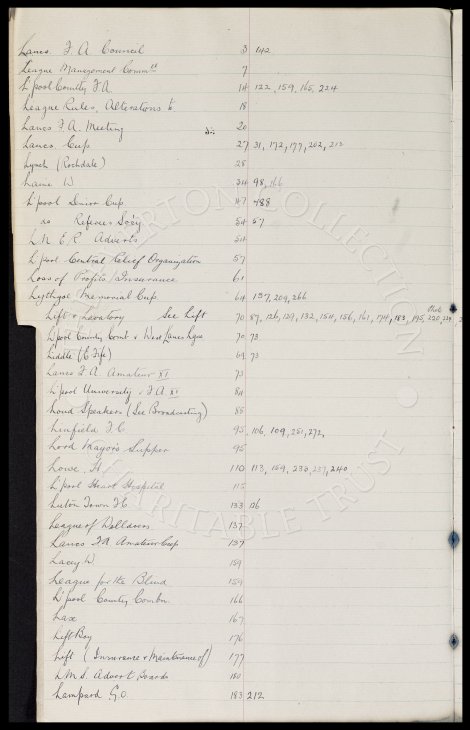 Lancs. F. A. Council 3 142
League Management Commtt 7
L'pool County F.A. 14 122, 159, 165, 224
League Rules, Alterations to 18
Lancs F.A. Meeting 20
Lancs. Cup 27 31, 172, 177, 202, 212
Lynch (Rochdale) 28
Laurie W. 34 98, 166
L'pool Senior Cup 47 488
do Referees Socy. 54 57
L.N.E.R. Adverts 54
L'pool Central Relief Organization 57
Loss of Profits Insurance 61
Lythgoe Memorial Cup 64 157, 209, 266
Lift & Lavatory See Lift 70 87, 126, 129, 132, 154, 156, 161, 174, 183, 195, 220,
L'pool County Comb. & West Lancs Lgue 70 73
Liddle (E. Fife) 69 73
Lancs F.A. Amateur XI 73
L'pool University v F.A. XI 84
Loud Speakers (See Broadcasting) 88
Linfield F.C. 95 106, 109, 251, 272,
Lord Mayor's Supper 95
Lowe, H. 110 113, 159, 230, 237, 240
L'pool Heart Hospital 115
Luton Town F.C. 133 136
League of Welldoers 137
Lancs. F.A. Amateur Cup 137
Lacey W. 159
League for the Blind 159
L'pool County Combn. 166
Lax 167
Lift Boy 176
Lift (Insurance & Maintenance of) 177
L.M.S. Advert Boards 180
Lampard G.O. 183 212
EVERTON COLLECTION
CHARITABLE TRUST